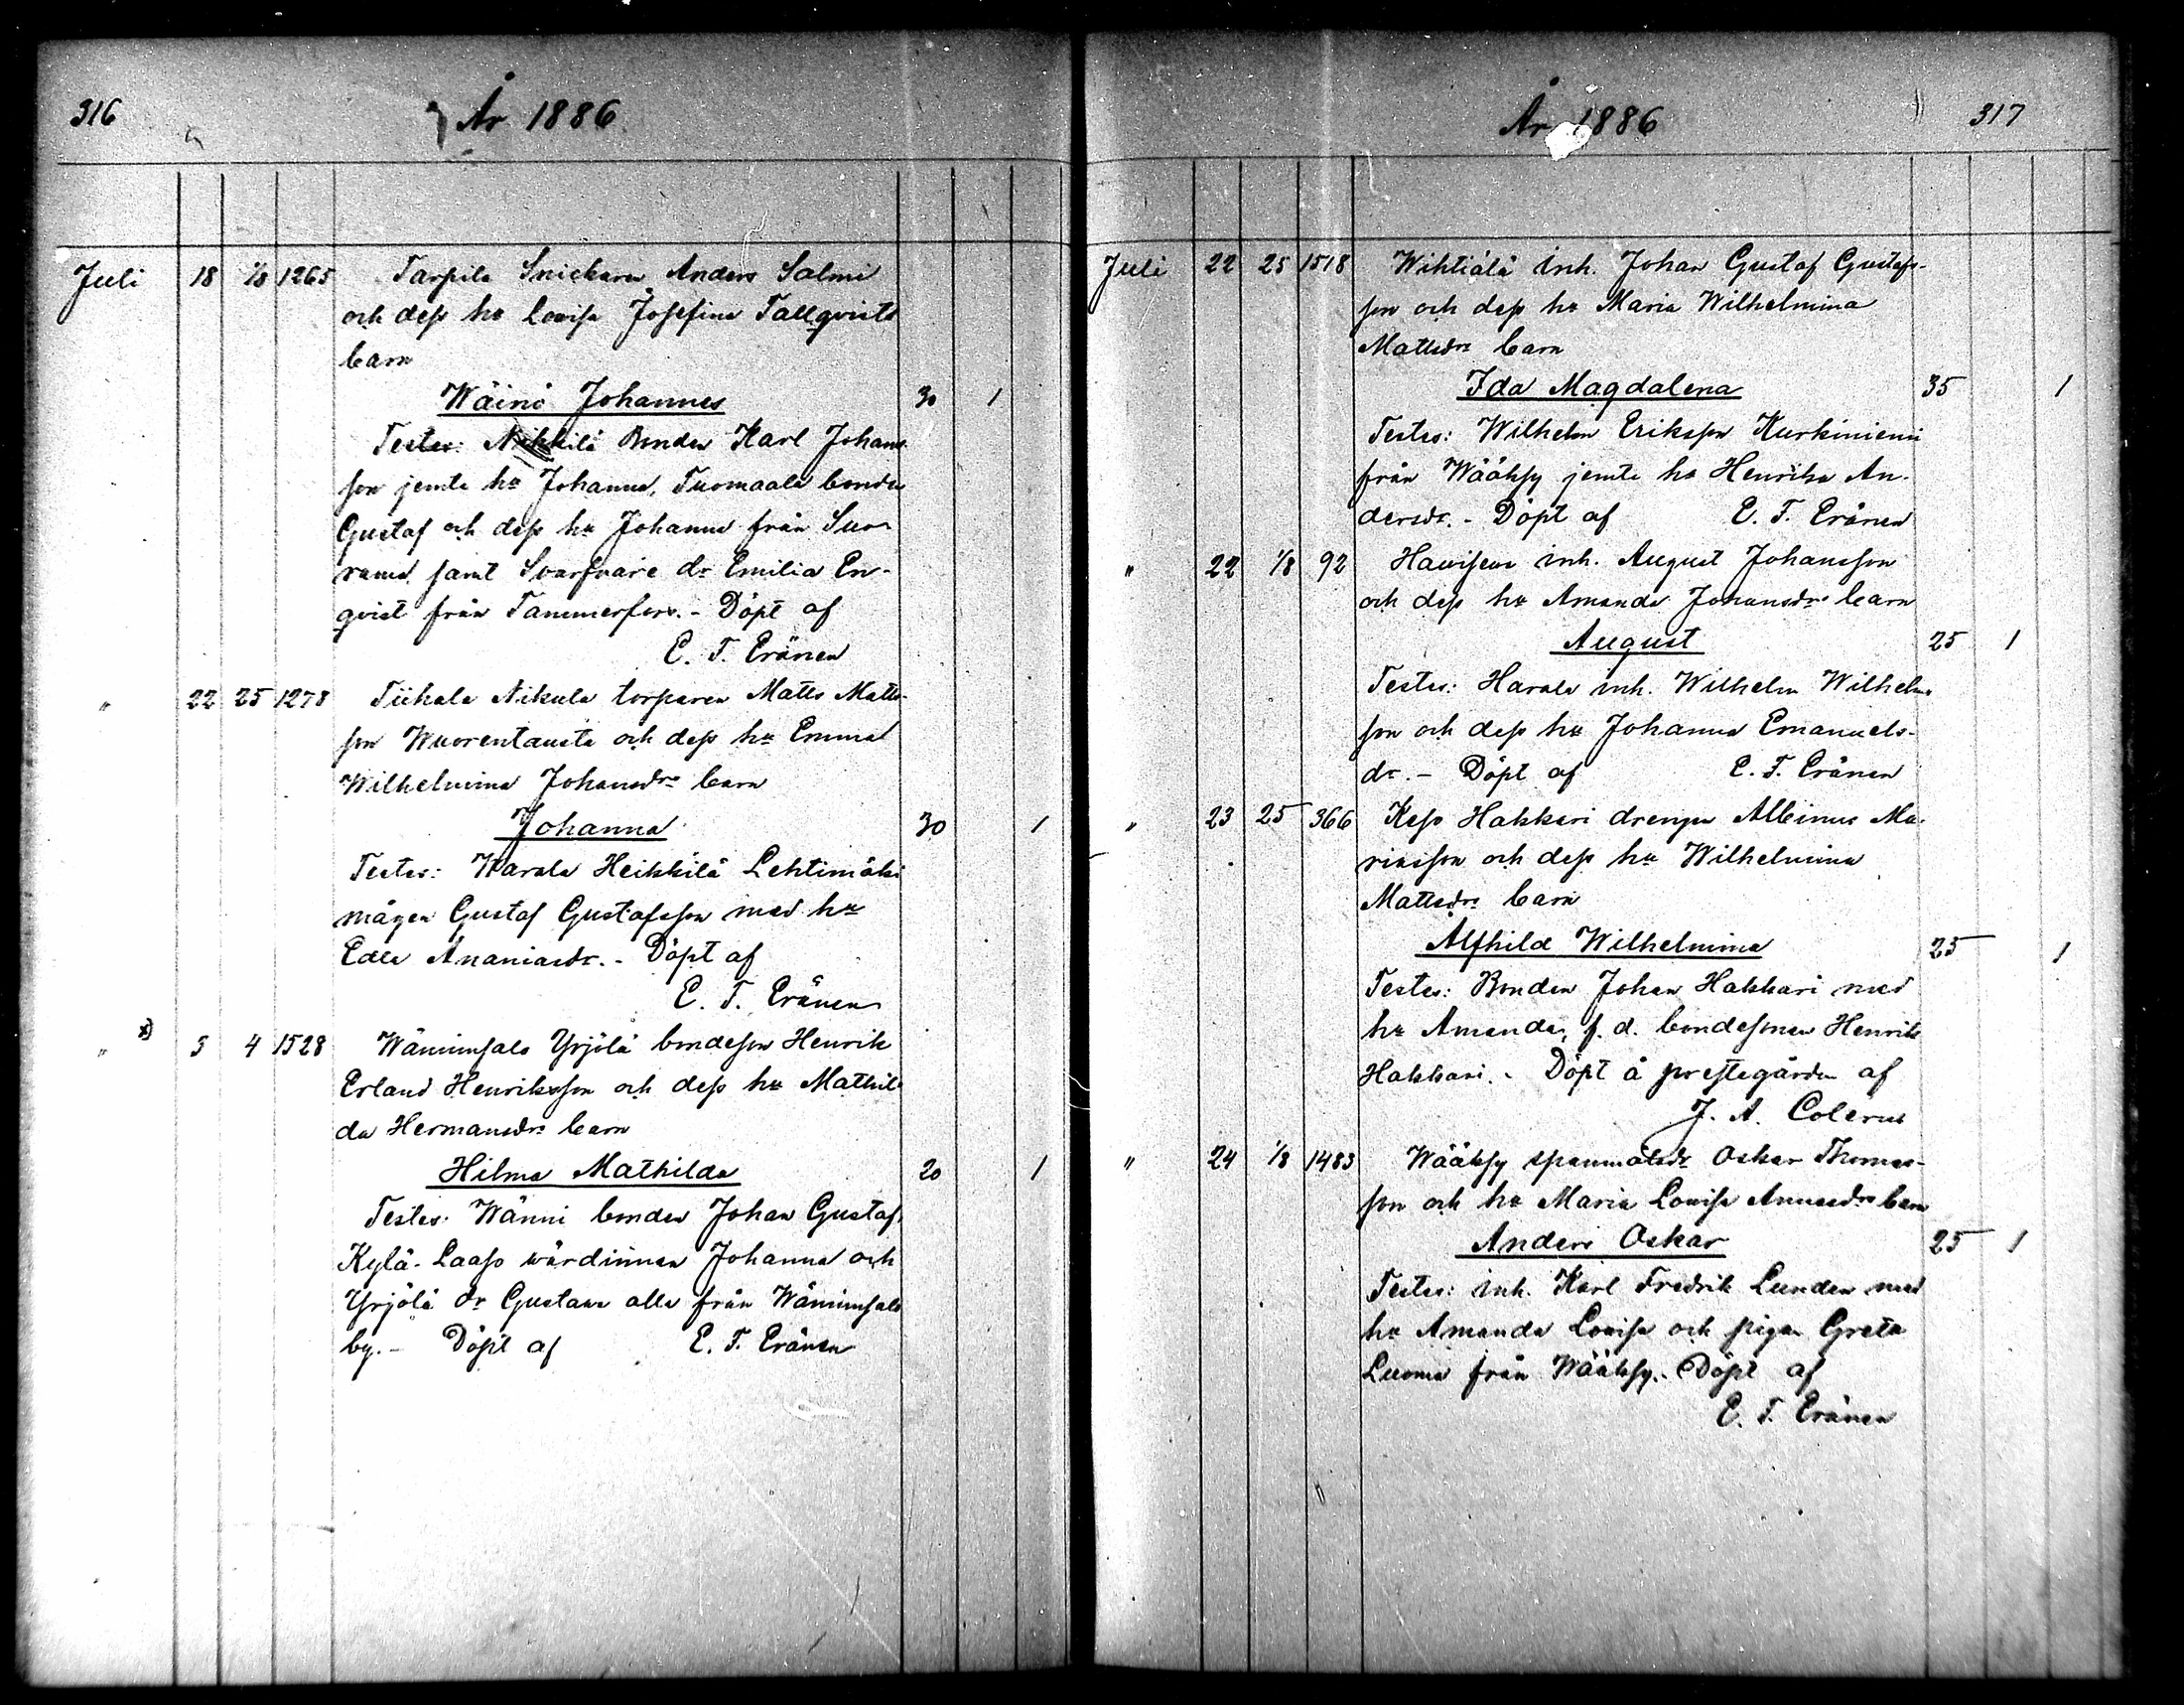 316
År 1886
Juli 18 1/8 1265 Tarpila Snickaren Anders Salmi
och dess hu Lovisa Josefina Tallqvists
barn
Wäinö Johannes 30 1
Testes: Nikkilä Bonden Karl Johans
son jemte hu Johanna, Tuomaala bonden
Gustaf och dess hu Johanna från Suo
rama, samt Svarfvare dr Emilia En-
qvist från Tammerfors. - Döpt af
E. F. Eränen
" 22 25 1278 Tiihala Nikula torparen Matts Matts-
son Wuorentausta och dess hu Emma
Wilhelmina Johansdrs barn
Johanna 30 1
Testes: Harala Heikkilä Lehtimäki
mågen Gustaf Gustafsson med hu
Edla Ananiasdr. - Döpt af
E. F. Eränen
" x) 3 4 1528 Wäninsalo Yrjölä bondeson Henrik
Erland Henriksson och dess hu Mathil
da Hermansdrs barn
Hilma Mathilda 20 1
Testes: Wänni bonden Johan Gustaf,
Kylä-Laaso värdinnan Johanna och
Yrjölä dr Gustava alla från Wäninsalo
by. - Döpt af E. F. Eränen
År 1886
317
Juli 22 25 1518 Wihtiälä inh. Johan Gustaf Gustafs-
son och dess hu Maria Wilhelmina
Mattsdrs barn
Ida Magdalena 35 1
Testes: Wilhelm Eriksson Kurkiniemi
från Wääksy jemte hu Henrika An-
dersdr. - Döpt af E. F. Eränen
" 22 1/8 92 Havisevä inh. August Johansson
och dess hu Amanda Johansdrs barn
August 25 1
Testes: Harala inh. Wilhelm Wilhelms
son och dess hu Johanna Emanuels-
dr. - Döpt af E. F. Eränen
" 23 25 366 Keso Hakkari drengen Albinus Ma-
riasson och dess hu Wilhelmina
Mattsdrs barn
Alfhild Wilhelmina 25 1
Testes: Bonden Johan Hakkari med
hu Amanda, f. d. bondesonen Henrik
Hakkari. - Döpt å prestegården af
J. A. Colerus
" 24 1/8 1483 Wääksy spannmålsdr Oskar Thomas-
son och hu Maria Lovisa Annasdrs barn
Anders Oskar 25 1
Testes: inh. Karl Fredrik Lunden med
hu Amanda Lovisa och pigan Greta
Luoma från Wääksy. - Döpt af
E. F. Eränen